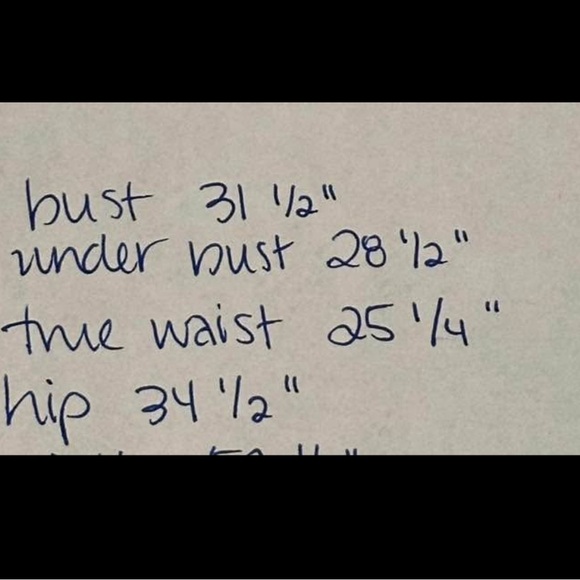 bust 31 1/2"
under bust 28 1/2"
true waist 25 1/4"
hip 34 1/2"